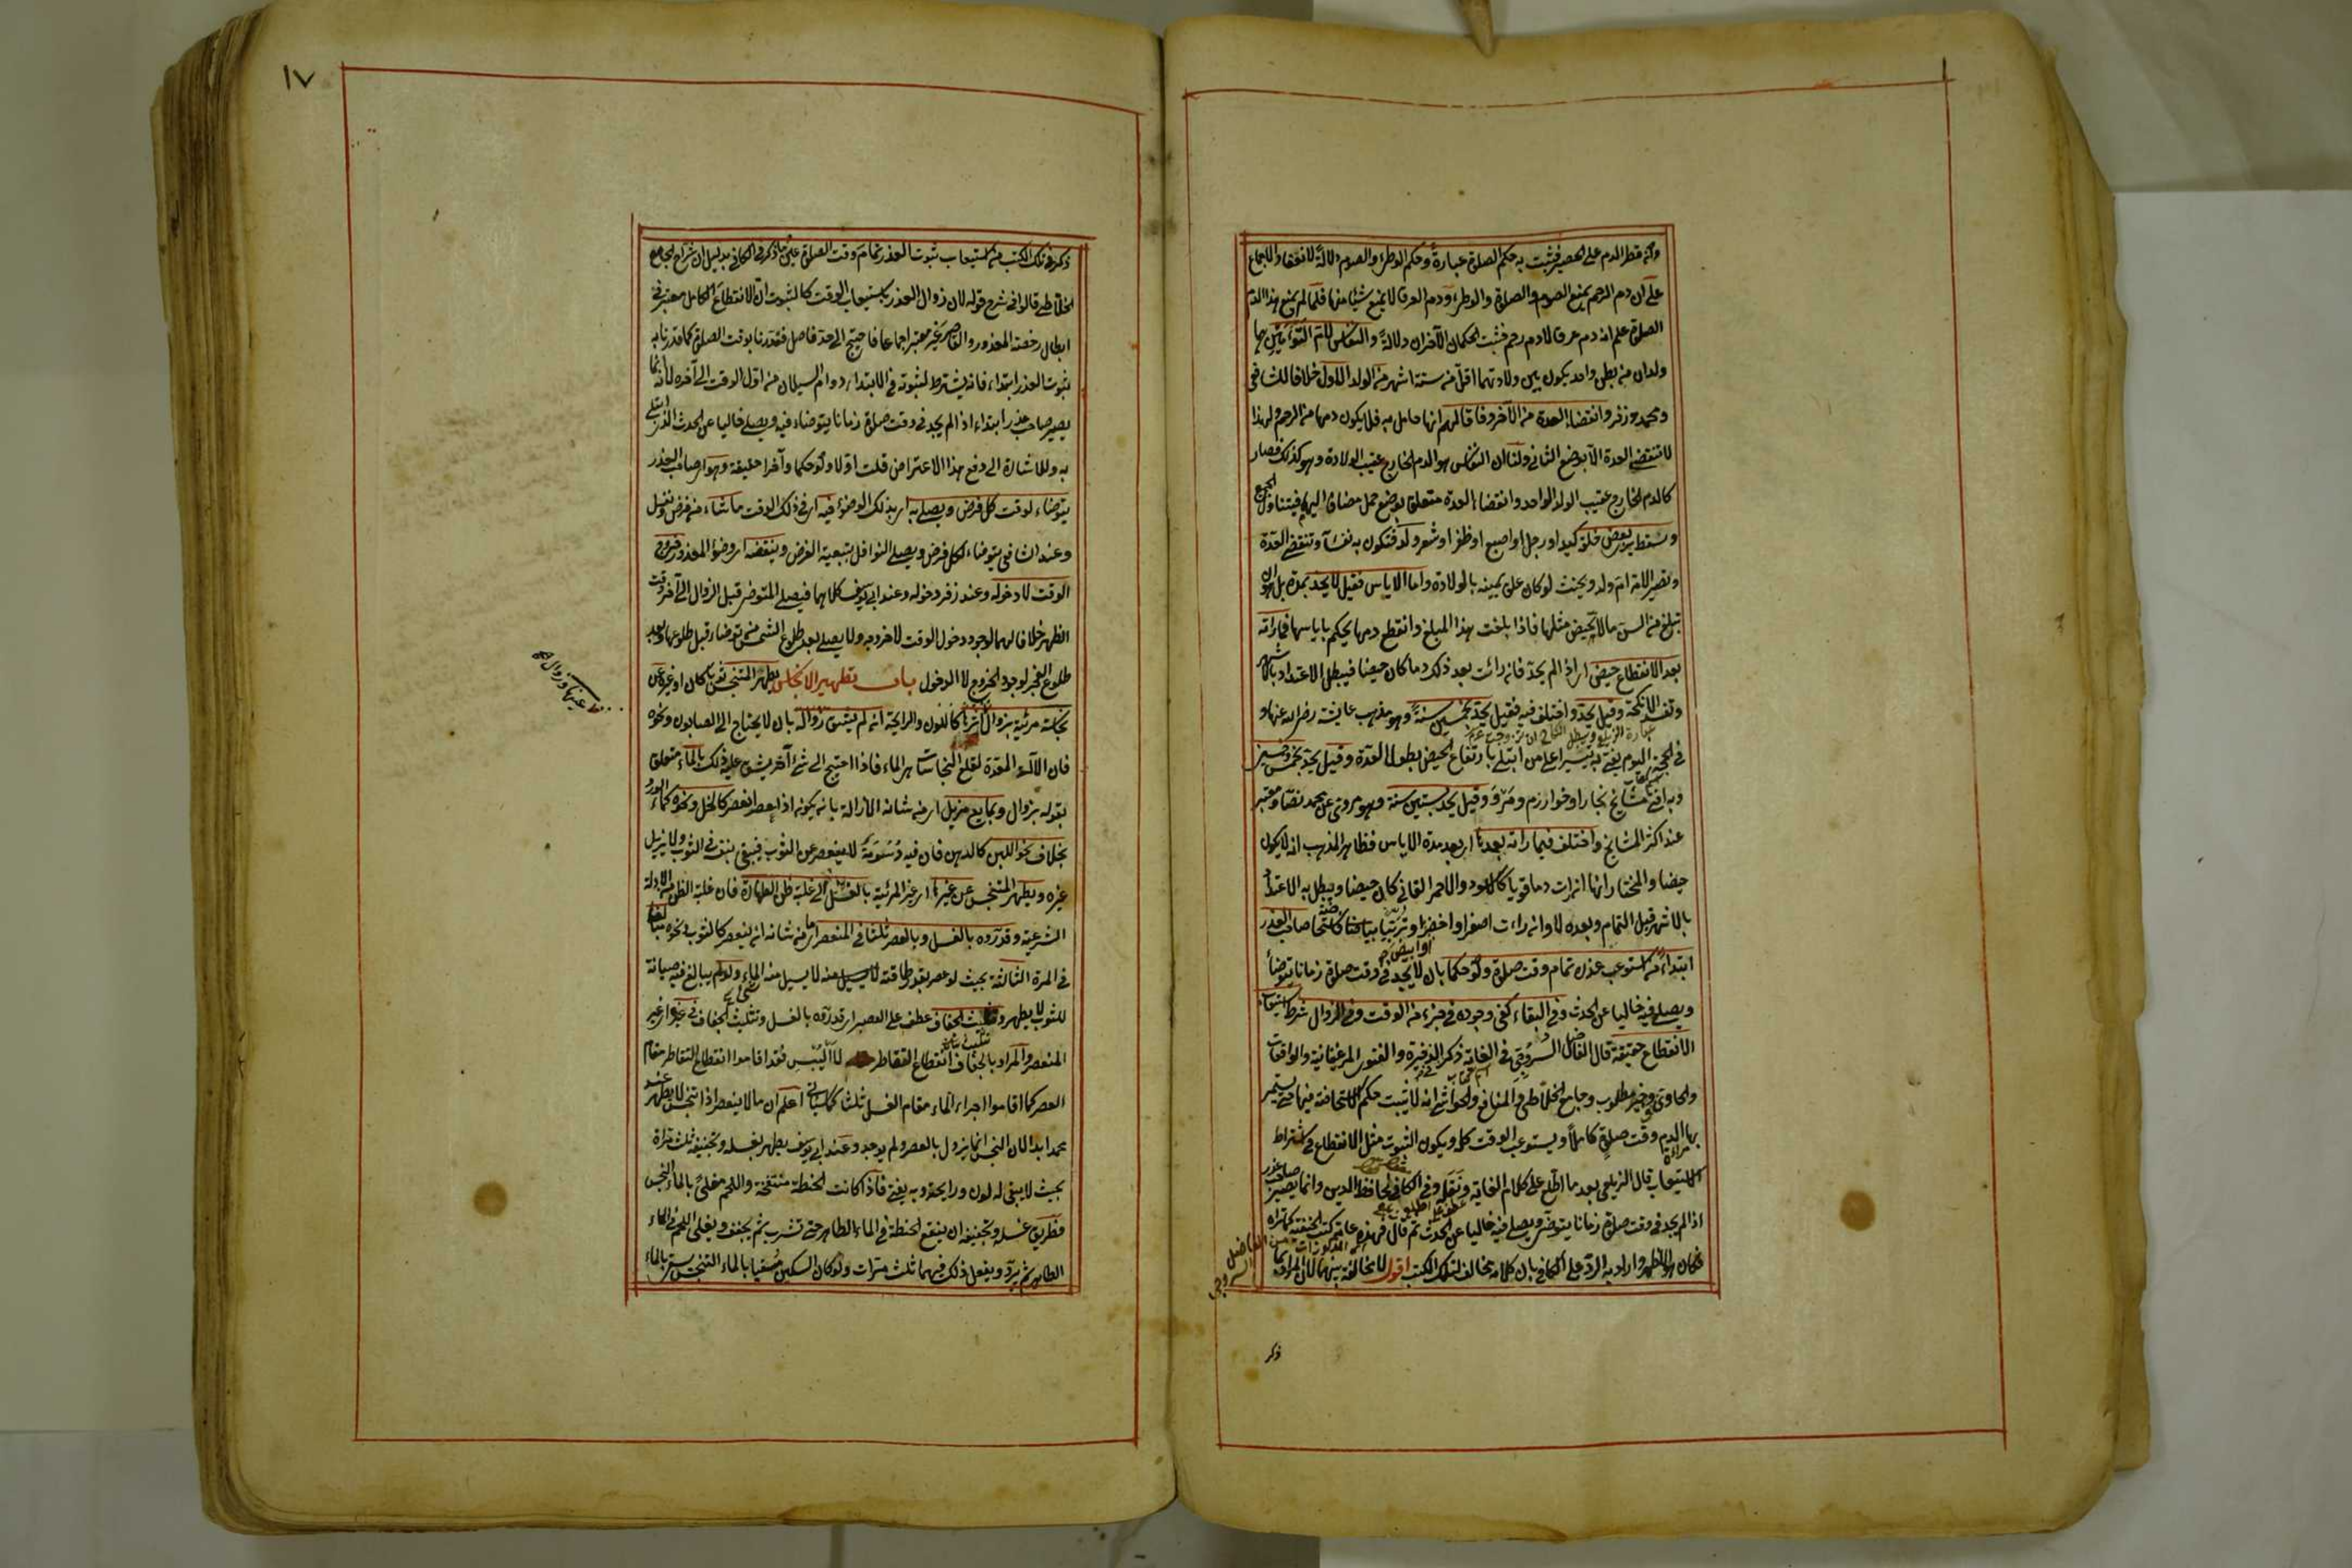 وان قطر الدم على الحصير فثبت به حكم الصلوة عبارة وحكم الوطئ والصوم دلالة لانعقاد الاجماع
على ان دم الرحم يمنع الصوم والصلوة والوطئ ودم العرق لا يمنع شيئا منها فلما لم يمنع هذا الدم
الصلوة علم انه دم عرق لا دم رحم فثبت الحكمان الآخران دلالة والنفاس لام التوأمين هما
ولدان من بطن واحد يكون بين ولادتهما اقل من ستة اشهر من الولد الاول خلافا للشافعي
ومحمد وزفر وانقضاء العدة من الآخر وفاقا لهم انها حامل به فلا يكون دمها من الرحم ولهذا
لا تنقضي العدة الا بوضع الثاني ولنا ان النفاس هو الدم الخارج عقيب الولادة وهو كذلك فصار
كالدم الخارج عقيب الولد الواحد وانقضاء العدة متعلق بوضع حمل مضاف اليها فيتناول الجميع
وسقط يرى بعض خلقه كيد او رجل او اصبع او ظفر او شعر ولد فتكون به نفساء وتنقضي العدة
وتصير الامة ام ولد ويحنث لو كان علق يمينه بالولادة واما الاياس فقيل لا يحد بمدة بل هو ان
تبلغ من السن ما لا تحيض مثلها فاذا بلغت هذا المبلغ وانقطع دمها يحكم باياسها فما رأته
بعد الانقطاع حيض اى اذا لم يحد فان رأت بعد ذلك دما كان حيضا فيبطل الاعتداد بالاشهر
وتفسد الانكحة وقيل يحد واختلف فيه فقيل يحد بخمسين سنة وهو مذهب عايشة رضى الله عنها و
في الحجة اليوم يفتى به تيسيرا على من ابتلى بارتفاع الحيض بطول العدة وقيل يحد بخمس وخمسين
وبه افتى مشايخ بخارا وخوارزم ومرو وقيل يحد بستين سنة وهو مروى عن محمد نصا ومعتبر
عند اكثر المشايخ واختلف فيما رأته بعدها اى بعد مدة الاياس فظاهر المذهب انه لا يكون
حيضا والمختار انها ان رأت دما قويا كالاسود والاحمر القاني كان حيضا ويبطل به الاعتداد
بالاشهر قبل التمام وبعده لا وان رأت اصفر او اخضر او تربيا فاستحاضة صاحب العذر
او ابيض
ابتداء من استوعب عذره تمام وقت صلوة ولو حكما بان لا يجد في وقت صلوة زمانا يتوضأ
ويصلى فيه خاليا عن الحدث وفي البقاء كفى وجوده في جزء من الوقت وفي الزوال شرط استيعاب
الانقطاع حقيقة قال الفاضل السروجى في الغاية ذكر الذخيرة والفتاوى المرغينانية والواقعات
والحاوى وخير مطلوب وجامع الخلاطى والمنافع والحواشى انه لا يثبت حكم الاستحاضة فيها حتى يستمر
بها الدم وقت صلوة كاملا ويستوعب الوقت كله ويكون الثبوت مثل الانقطاع في اشتراط
الاستيعاب قال الزيلعى بعد ما اطلع على كلام الغاية ونقله وفي الكافي لحافظ الدين وانما يصير صاحب عذر
اذا لم يجد في وقت صلوة زمانا يتوضأ ويصلى فيه خاليا عن الحدث ثم قال فهذه عامة كتب الحنفية كما تراه
فكان هو الاظهر واراد به الرد على الكافي بان كلامه مخالف لتلك الكتب اقول لا مخالفة بينهما لان المراد بما
الفاضل السروجى
ذكر
١٧
ذكر في تلك الكتب من استيعاب ثبوت العذر تمام وقت الصلوة عين ما ذكر في الكافي بدليل ان شراح الجامع
الخلاطى قالوا في شرح قوله لان زوال العذر باستيعاب الوقت كالثبوت ان الانقطاع الكامل معتبر في
ابطال رخصة المعذور والقاصر غير معتبر اجماعا فاحتيج الى حد فاصل فقدرنا بوقت الصلوة كما قدرنا به
ثبوت العذر ابتداء فانه يشترط لثبوته في الابتداء دوام السيلان من اول الوقت الى آخره لانه انما
يصير صاحب عذر ابتداء اذا لم يجد في وقت صلوة زمانا يتوضاء فيه ويصلى خاليا عن الحدث الذى ابتلى
به وللاشارة الى دفع هذا الاعتراض قلت اولا ولو حكما وآخرا حقيقة وهو اى صاحب العذر
يتوضاء لوقت كل فرض ويصلى به اى بذلك الوضوء فيه اى في ذلك الوقت ما شاء من فرض ونفل
وعند الشافعي يتوضاء لكل فرض ويصلى النوافل بتبعية الفرض وينقضه اى وضوء المعذور خروج
الوقت لا دخوله وعند زفر دخوله وعند ابى يوسف كلاهما فيصلى المتوضى قبل الزوال الى آخر وقت
الظهر خلافا لهما لوجود دخول الوقت لا خروجه ولا يصلى بعد طلوع الشمس من توضاء قبل طلوعها وبعد
طلوع الفجر لوجود الخروج لا الدخول باب تطهير الانجاس يطهر المتنجس ثوبا كان او غيره عن
نجاسة مرئية بزوال اثرها كاللون والرايحة ان لم يشق زواله بان لا يحتاج الى الصابون ونحوه
عينها وزوال
فان الآلة المعدة لقلع النجاسات هى الماء فاذا احتيج الى شئ آخر يشق عليه ذلك بالماء متعلق
بقوله بزوال وبمايع مزيل اى من شانه الازالة بان يكون اذا عصر انعصر كالخل ونحوه كماء الورد
بخلاف نحو اللبن كالدهن فان فيه دسومة لا ينعصر عن الثوب فيبقى بنفسه في الثوب ولا يزيل
غيره ويطهر المتنجس عن غيرها اى غير المرئية بالغسل الى غلبة ظن الطهارة فان غلبة الظن من الادلة
الشرعية وقدروه بالغسل وبالعصر ثلثا في المنعصر اى ما من شانه ان ينعصر كالثوب ونحوه مبالغا
في المرة الثالثة بحيث لو عصر بقدر طاقته لا يسيل منه الماء ولو لم يبالغ فيه صيانة
للثوب لا يطهر وتثليث الجفاف عطف على العصر اى قدروه بالغسل وتثليث الجفاف في غيره اى غير
المنعصر والمراد بالجفاف انقطاع التقاطر لا اليبس فقد اقاموا انقطاع التقاطر مقام
العصر كما اقاموا اجراء الماء مقام الغسل ثلثا كما سيأتى اعلم ان ما لا ينعصر اذا تنجس لا يطهر عند
محمد ابدا لان النجس انما يزول بالعصر ولم يوجد وعند ابى يوسف يطهر بغسله وتجفيفه ثلث مرات
بحيث لا يبقى له لون ورايحة وبه يفتى فاذا كانت الحنطة منتفخة واللحم مغلى بالماء النجس
فطريق غسله وتجفيفه ان ينقع الحنطة في الماء الطاهر حتى تشرب ثم يجفف ويغلى اللحم في الماء
الطاهر ثم يبرد ويفعل ذلك فيهما ثلث مرات ولو كان السكين مسقيا بالماء النجس يسقى بالماء